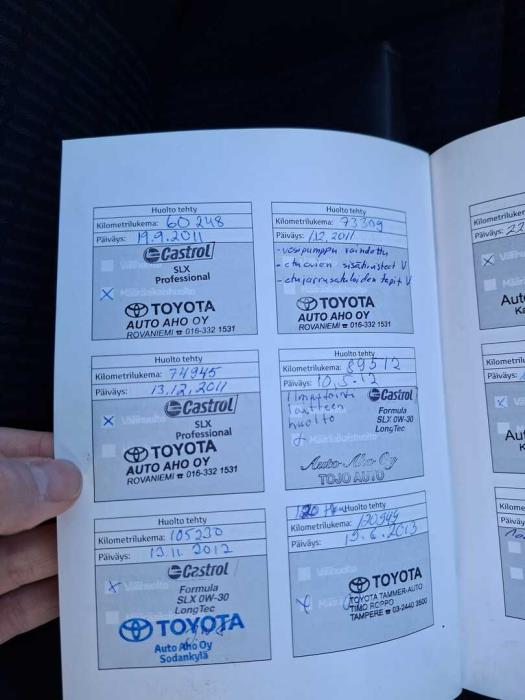 Huolto tehty
Kilometrilukema: 60 248
Päiväys: 19.9.2011
Castrol
SLX
Professional
TOYOTA
AUTO AHO OY
ROVANIEMI ☎ 016-332 1531
Huolto tehty
Kilometrilukema: 73309
Päiväys: 1.12.2011
- vesipumppu vaihdettu
- etuovien
- etujarrusatuloiden tapit V
TOYOTA
AUTO AHO OY
ROVANIEMI ☎ 016-332 1531
Huolto tehty
Kilometrilukema: 74945
Päiväys: 13.12.2011
Välihuolto
Castrol
SLX
Professional
TOYOTA
AUTO AHO OY
ROVANIEMI ☎ 016-332 1531
Huolto tehty
Kilometrilukema: 89512
Päiväys: 10.5.12
Ilmastointi
laitteen
huolto
Castrol
Formula
SLX 0W-30
LongTec
Määräaikaishuolto
Auto Aho Oy
TOJO AUTO
Huolto tehty
Kilometrilukema: 105230
Päiväys: 13.11.2012
Välihuolto
Castrol
Formula
SLX 0W-30
LongTec
TOYOTA
Auto Aho Oy
Sodankylä
120 Huolto tehty
Kilometrilukema: 120944
Päiväys: 19.6.2013
Välihuolto
TOYOTA
TOYOTA TAMMER-AUTO
TIMO ROPPO
TAMPERE ☎ 03-2440 3500
Kilome
Päiväys: 22
Aut
Ka
Kilome
Päiväy
Au
K
Kilome
Päivä